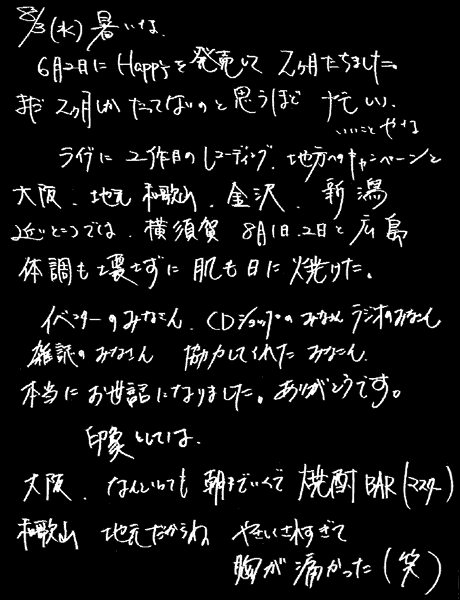 8/3(水) 暑いな.
6月2日に Happyを発売して 2ヶ月たちました。
まだ 2ヶ月しかたってないのと思うほど 忙しい.
いいことやね
ライヴに 2作目のレコーディング. 地方へのキャンペーンと
大阪. 地元 和歌山. 金沢. 新潟
近いところでは. 横須賀 8月1日.2日と広島
体調も壊さずに 肌も日に焼けた。
イベンターのみなさん. CDショップのみなさん ラジオのみなさん
雑誌のみなさん 協力してくれた みなさん.
本当に お世話になりました。ありがとうです。
印象としては.
大阪. なんといっても 朝までいて 焼酎BAR(マスター)
和歌山 地元だからね やさしすぎて
胸が 痛かった(笑)